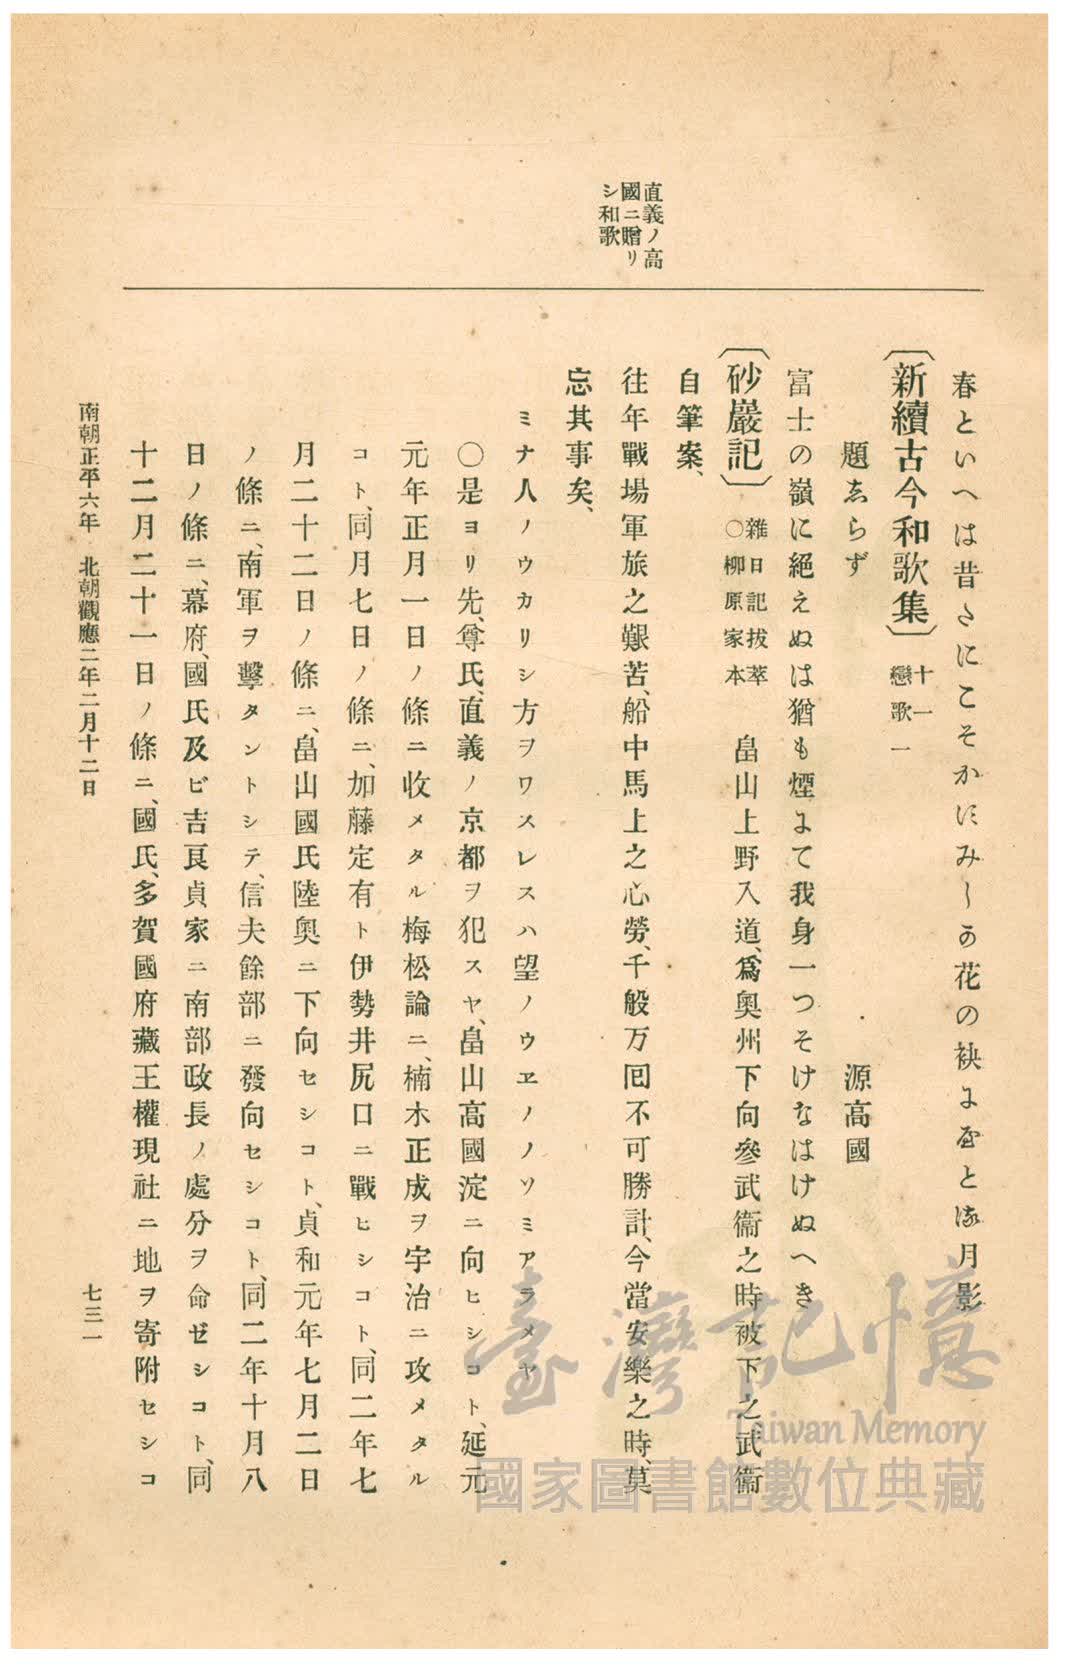 直義ノ高
國ニ贈リ
シ和歌
春といへは昔さにこそかにみしの花の袂によと月影
〔新續古今和歌集〕十一 戀歌一
題ゑらず 源高國
富士の嶺に絕えぬは猶も煙にて我身一つそけなはけぬへき
〔砂巖記〕雜日記拔萃 〇柳原家本 畠山上野入道、爲奧州下向參武衞之時被下之武衞
自筆案、
往年戰場軍旅之艱苦、船中馬上之心勞、千般万囘不可勝計、今當安樂之時、莫
忘其事矣、
ミナ人ノウカリシ方ヲワスレスハ望ノウヱノノソミアラメヤ
〇是ヨリ先、尊氏、直義ノ京都ヲ犯スヤ、畠山高國淀ニ向ヒシコト、延元
元年正月一日ノ條ニ收メタル梅松論ニ、楠木正成ヲ宇治ニ攻メタル
コト、同月七日ノ條ニ、加藤定有ト伊勢井尻口ニ戰ヒシコト、同二年七
月二十二日ノ條ニ、畠山國氏陸奧ニ下向セシコト、貞和元年七月二日
ノ條ニ、南軍ヲ擊タントシテ、信夫餘部ニ發向セシコト、同二年十月八
日ノ條ニ、幕府、國氏及ビ吉良貞家ニ南部政長ノ處分ヲ命ゼシコト、同
十二月二十一日ノ條ニ、國氏、多賀國府藏王權現社ニ地ヲ寄附セシコ
南朝正平六年 北朝觀應二年二月十二日
七三一
臺灣記憶
Taiwan Memory
國家圖書館數位典藏